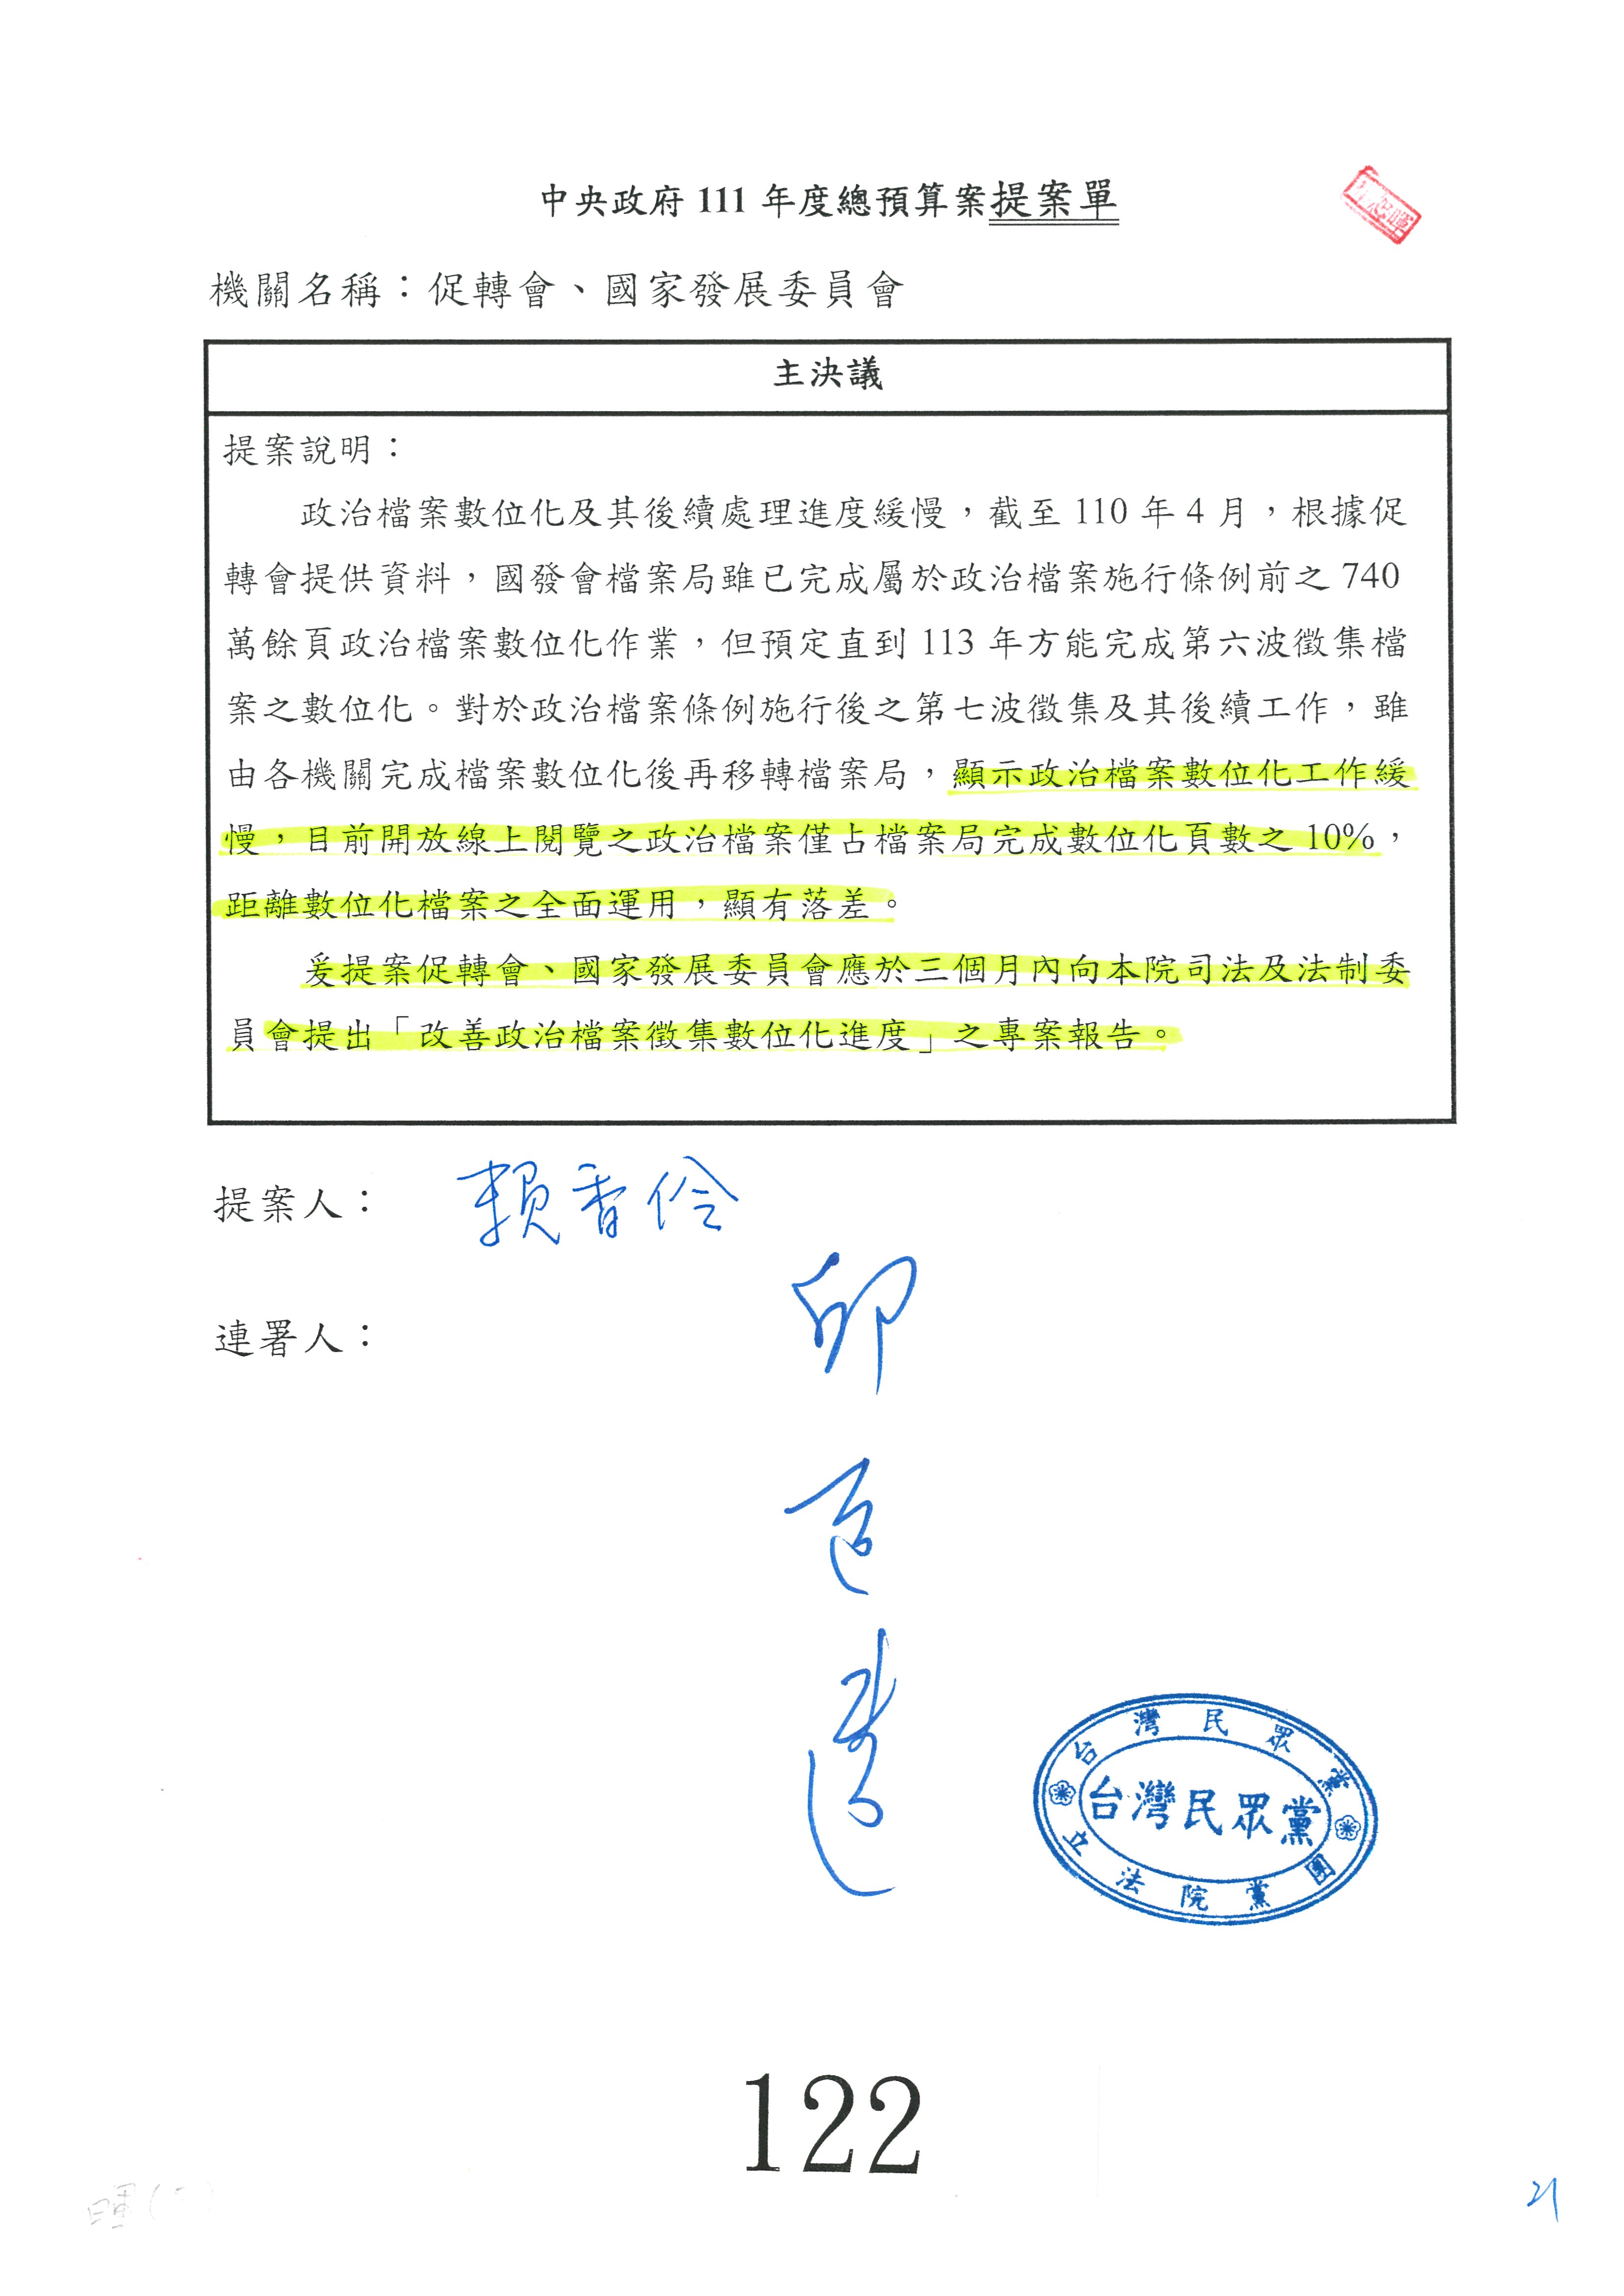 中央政府 111 年度總預算案提案單
機關名稱：促轉會、國家發展委員會
主決議
提案說明：
政治檔案數位化及其後續處理進度緩慢，截至 110 年 4 月，根據促
轉會提供資料，國發會檔案局雖已完成屬於政治檔案施行條例前之 740
萬餘頁政治檔案數位化作業，但預定直到 113 年方能完成第六波徵集檔
案之數位化。對於政治檔案條例施行後之第七波徵集及其後續工作，雖
由各機關完成檔案數位化後再移轉檔案局，顯示政治檔案數位化工作緩
慢，目前開放線上閱覽之政治檔案僅占檔案局完成數位化頁數之 10%，
距離數位化檔案之全面運用，顯有落差。
爰提案促轉會、國家發展委員會應於三個月內向本院司法及法制委
員會提出「改善政治檔案徵集數位化進度」之專案報告。
提案人： 賴香伶
連署人：
邱
台灣民眾黨
台灣民眾黨
立法院黨團
122
21